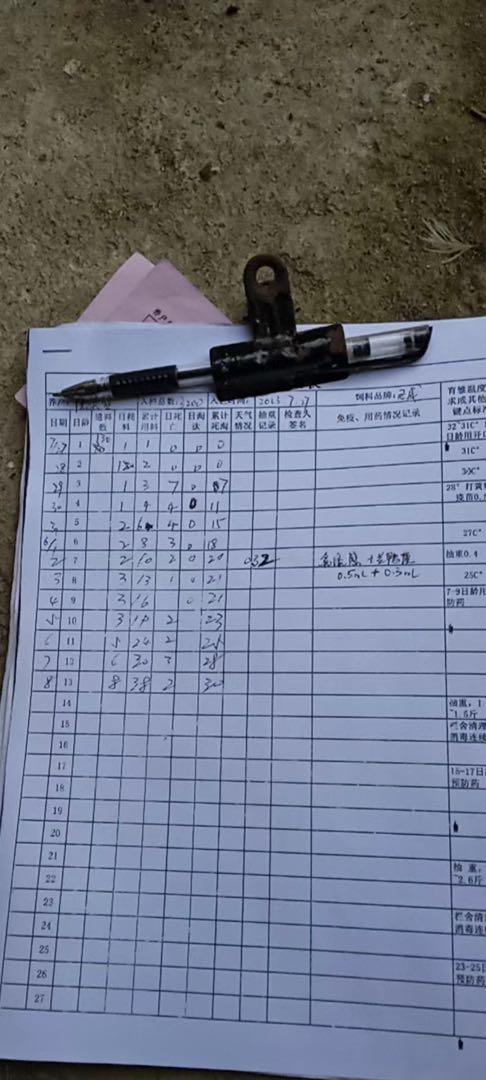 入栏总数: 2023 7.27 饲料品牌:
日期 日龄 进料数 日耗料 累计用料 日死亡 日淘汰 累计死淘 天气情况 抽重记录 检查人签名 免疫、用药情况记录 育雏温度
7/27 1 1 1 0 0 0 32°31C°
28 2 2 0 0 0 31C°
29 3 1 3 7 0 30C°
30 4 1 4 4 0 11 28°
5 2 6 4 0 15
6 2 8 3 0 18 27C°
2 7 2 10 2 0 20 032 0.5mL+0.3mL 抽重0.4
3 8 3 13 1 0 21 25C°
4 9 3 16 0 21 7-9日龄
防药
5 10 3 19 2 23
6 11 5 24 2 25
7 12 6 30 3 28
8 13 8 38 2 30
14 抽重,1
~1.5斤
15 栏舍清理
消毒连续
16
17 15-17日
预防药
18
19
20
21
22 抽重,
~2.6斤
23
24 栏舍清
消毒连
25
26 23-25日
预防药
27